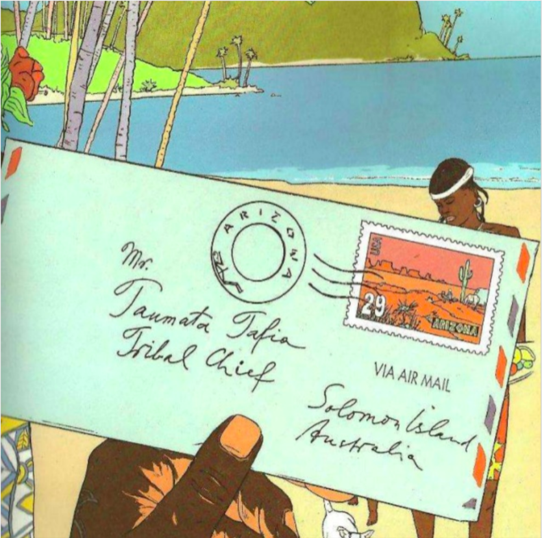 ARIZONA
USA
29
ARIZONA
Mr.
Taumata Tafia
Tribal Chief
VIA AIR MAIL
Solomon Island
Australia